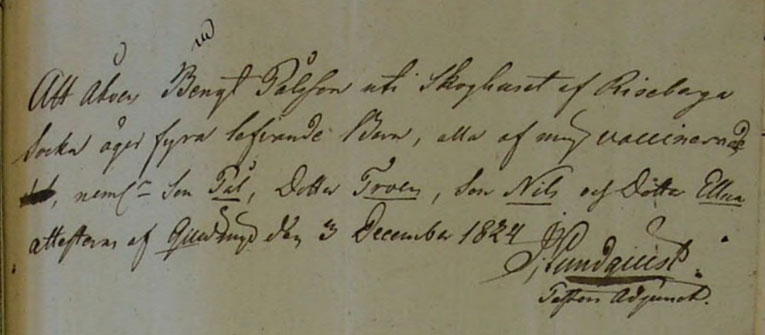 Att Åboen Bengt Pålsson uti Skoghuset af Riseberga
Sockn äger fyra lefvande Barn, alla af mig vaccinerade
, neml. Son Pål, Dotter Troen, Son Nils och Dotter Elna
attesteras af den 3 December 1824
Lundquist.
Pastors Adjunct.